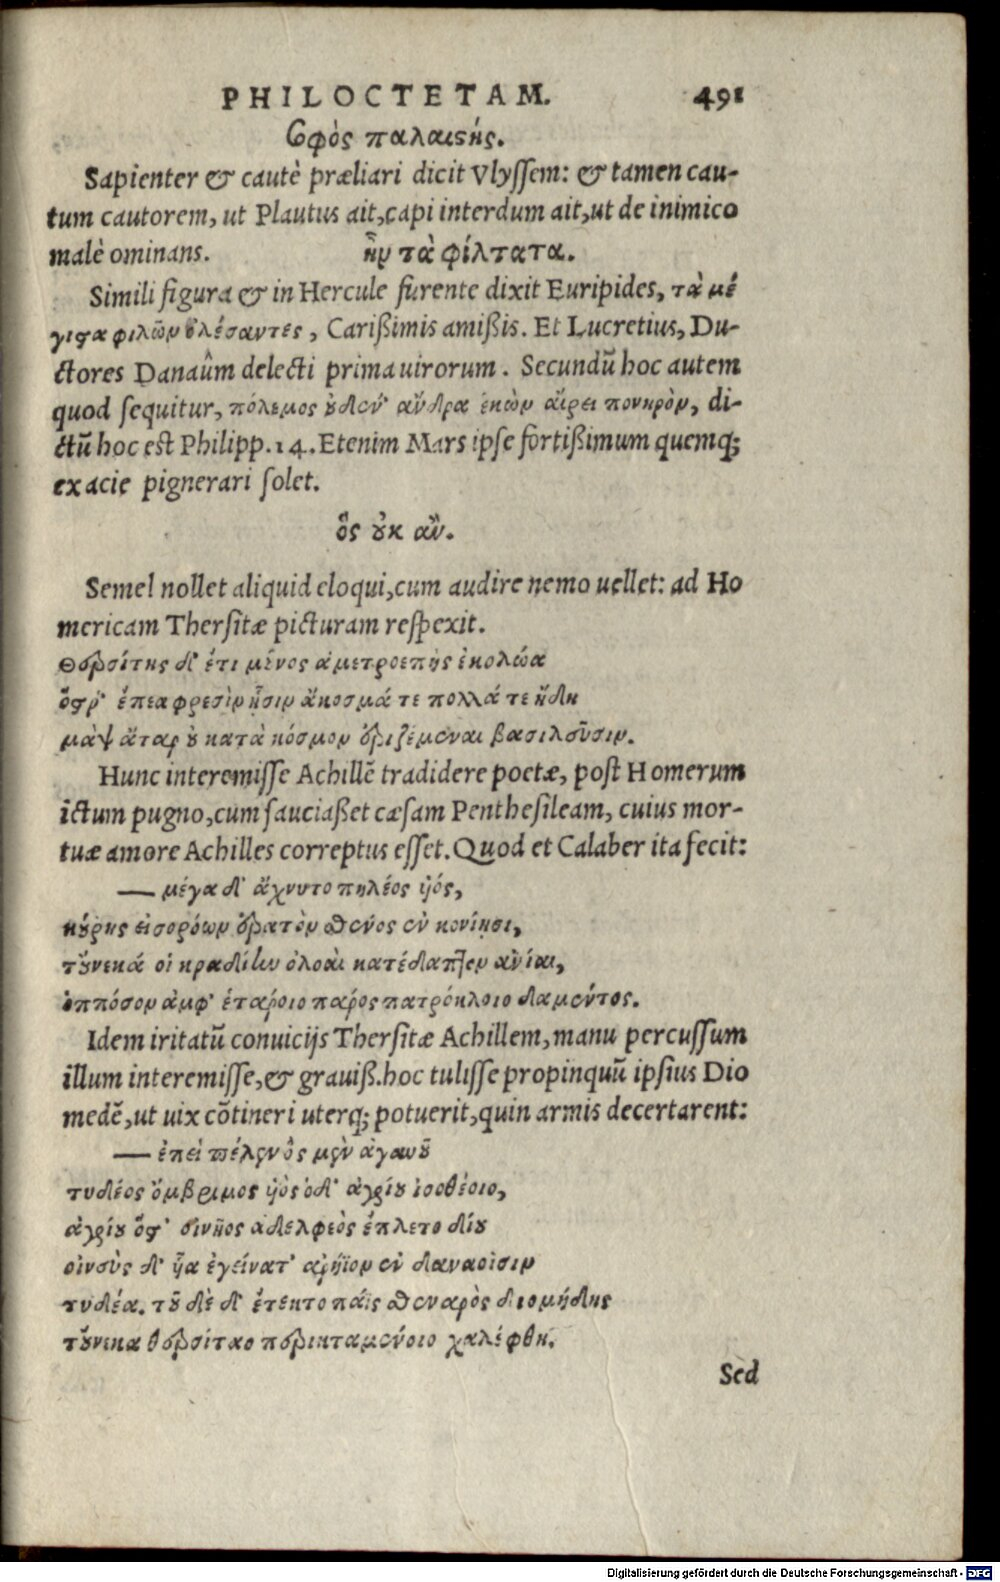 PHILOCTETAM. 491
Σοφὸς παλαιστής.
Sapienter & cautè præliari dicit Vlyssem: & tamen cau-
tum cautorem, ut Plautus ait, capi interdum ait, ut de inimico
malè ominans. ἦν τὰ φίλτατα.
Simili figura & in Hercule furente dixit Euripides, τὰ μέ
γιστα φιλῶν ὀλέσαντες, Carißimis amißis. Et Lucretius, Du-
ctores Danaûm delecti prima uirorum. Secundũ hoc autem
quod sequitur, πόλεμος οὐδέν' ἄνδρα ἑκὼν αἵρει πονηρὸν, di-
ctũ hoc est Philipp. 14. Etenim Mars ipse fortißimum quemq;
ex acie pignerari solet.
ὃς οὐκ ἄν.
Semel nollet aliquid eloqui, cum audire nemo uellet: ad Ho
mericam Thersitæ picturam respexit.
Θερσίτης δ' ἔτι μένος ἀμετροεπὴς ἐκολώα
ὅς ῥ' ἔπεα φρεσὶν ᾗσιν ἄκοσμά τε πολλά τε ᾔδη
μὰψ ἄταρ οὐ κατὰ κόσμον ἐριζέμεναι βασιλεῦσιν.
Hunc interemisse Achillẽ tradidere poetæ, post Homerum
ictum pugno, cum sauciaßet cæsam Penthesileam, cuius mor-
tuæ amore Achilles correptus esset. Quod et Calaber ita fecit:
— μέγα δ' ἄχνυτο πηλέος υἱός,
κούρης εἰσορόων ἐρατὸν σθένος ἐν κονίῃσι,
τοὔνεκά οἱ κραδίην ὀλοαὶ κατέδαπτον ἀνίαι,
ὁππόσον ἀμφ' ἑτάροιο πάρος πατρόκλοιο δαμέντος.
Idem iritatũ conuicijs Thersitæ Achillem, manu percussum
illum interemisse, & grauiß. hoc tulisse propinquũ ipsius Dio
medẽ, ut uix cõtineri uterq; potuerit, quin armis decertarent:
— ἐπεὶ πέλεν ὃς μὲν ἀγαυοῦ
τυδέος ὄμβριμος υἱὸς ὁ δ' ἀγρίου ἰσοθέοιο,
ἀγρίου ὅς τ' οἰνῆος ἀδελφεὸς ἔπλετο δίου
οἰνεὺς δ' υἷα ἐγείνατ' ἀρήϊον ἐν δαναοῖσιν
τυδέα. τοῦ δὲ δ' ἐτέκτο πάϊς σθεναρὸς διομήδης
τοὔνεκα θερσίταο περικταμένοιο χαλέφθη.
Sed
Digitalisierung gefördert durch die Deutsche Forschungsgemeinschaft - DFG